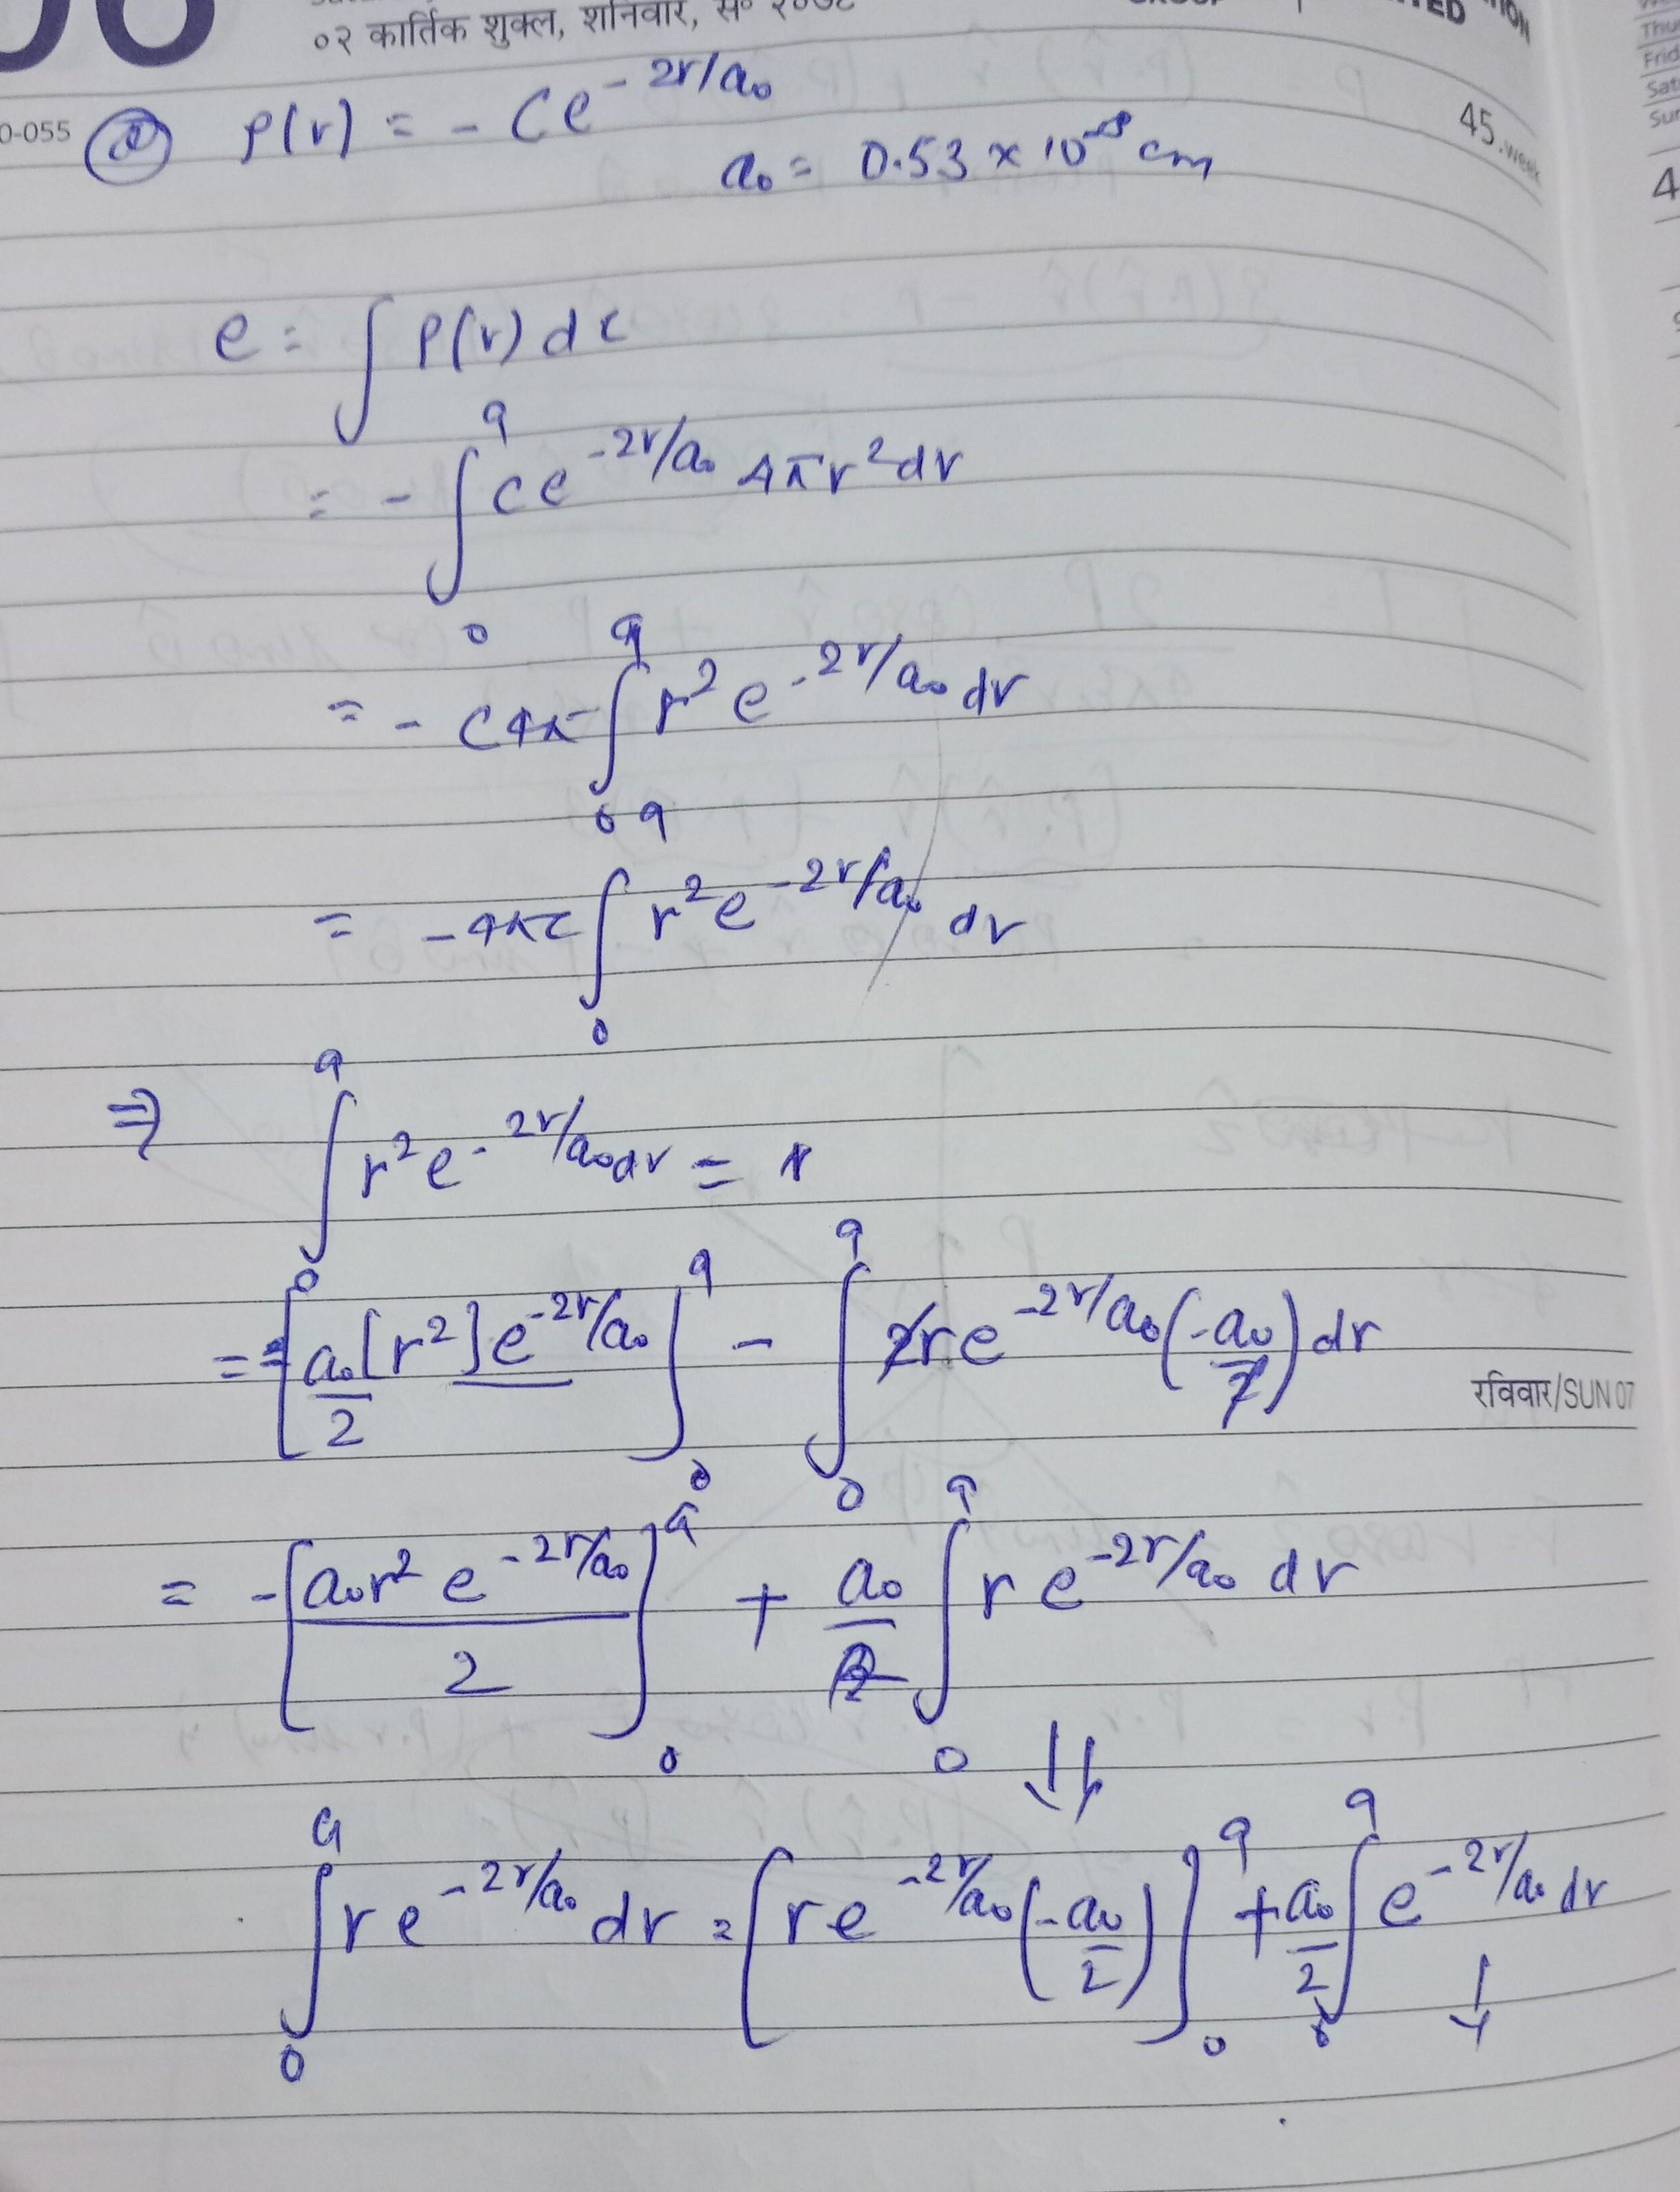 ०२ कार्तिक शुक्ल, शनिवार, सं० २०७८
0-055
45.week
ρ(r) = - Ce^{-2r/a₀}
a₀ = 0.53 × 10^{-8} cm
e = ∫ ρ(r) dτ
= - ∫₀^a Ce^{-2r/a₀} 4πr²dr
= - C4π ∫₀^a r² e^{-2r/a₀} dr
= -4πC ∫₀^a r² e^{-2r/a₀} dr
⇒ ∫₀^a r² e^{-2r/a₀} dr =
= -[a₀/2 [r²] e^{-2r/a₀}]₀^a - ∫₀^a 2r e^{-2r/a₀} (-a₀/2) dr
रविवार/SUN 07
= -[a₀r² e^{-2r/a₀} / 2]₀^a + a₀ ∫₀^a r e^{-2r/a₀} dr
∫₀^a r e^{-2r/a₀} dr = [r e^{-2r/a₀} (-a₀/2)]₀^a + a₀/2 ∫₀^a e^{-2r/a₀} dr